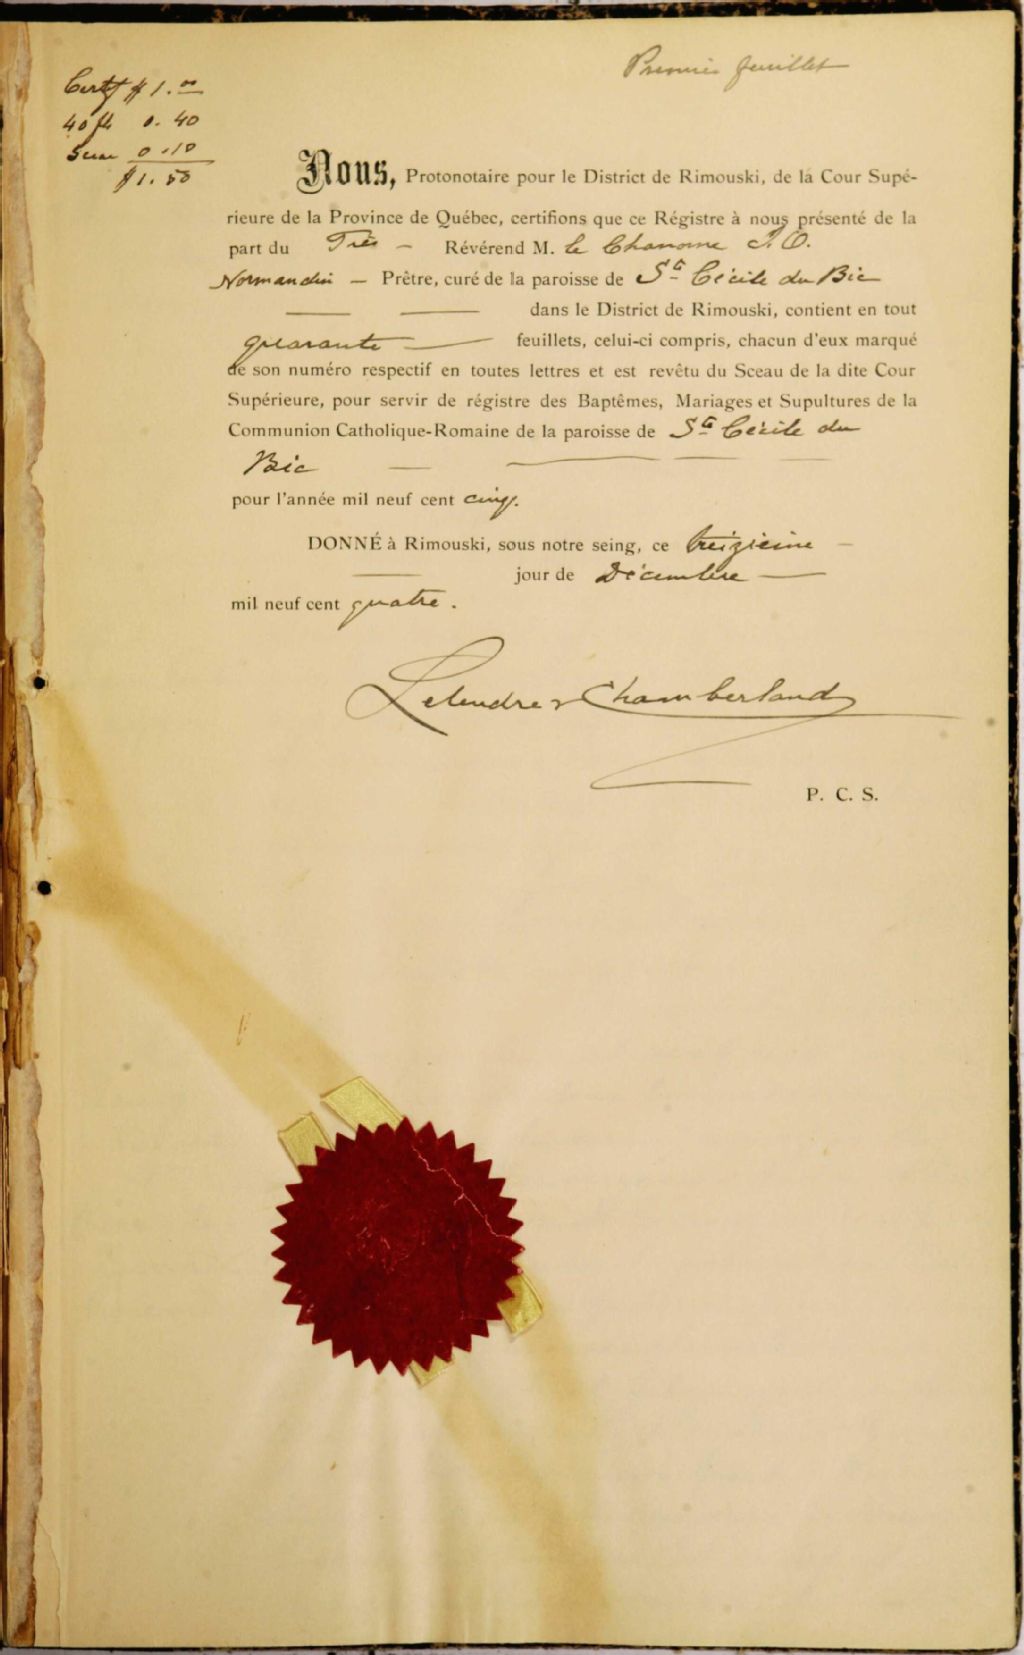 Premier feuillet
Certf $1.00
40 ft 0.40
Seau 0.10
$1.50
Nous, Protonotaire pour le District de Rimouski, de la Cour Supé-
rieure de la Province de Québec, certifions que ce Régistre à nous présenté de la
part du Très — Révérend M. le Chanoine J. O.
Normandin — Prêtre, curé de la paroisse de Ste Cécile du Bic
dans le District de Rimouski, contient en tout
quarante — feuillets, celui-ci compris, chacun d'eux marqué
de son numéro respectif en toutes lettres et est revêtu du Sceau de la dite Cour
Supérieure, pour servir de régistre des Baptêmes, Mariages et Supultures de la
Communion Catholique-Romaine de la paroisse de Ste Cécile du
Bic
pour l'année mil neuf cent cinq.
DONNÉ à Rimouski, sous notre seing, ce treizième —
jour de Décembre —
mil neuf cent quatre.
Letendre & Chamberland
P. C. S.